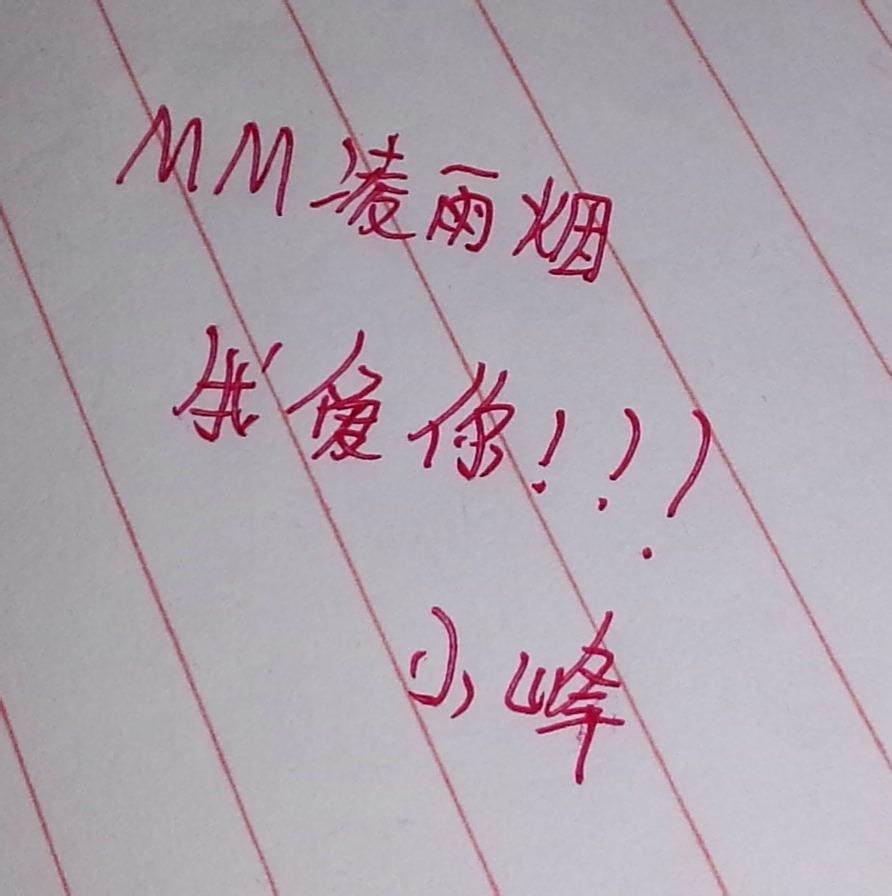 MM凌雨烟
我爱你!!!
小峰